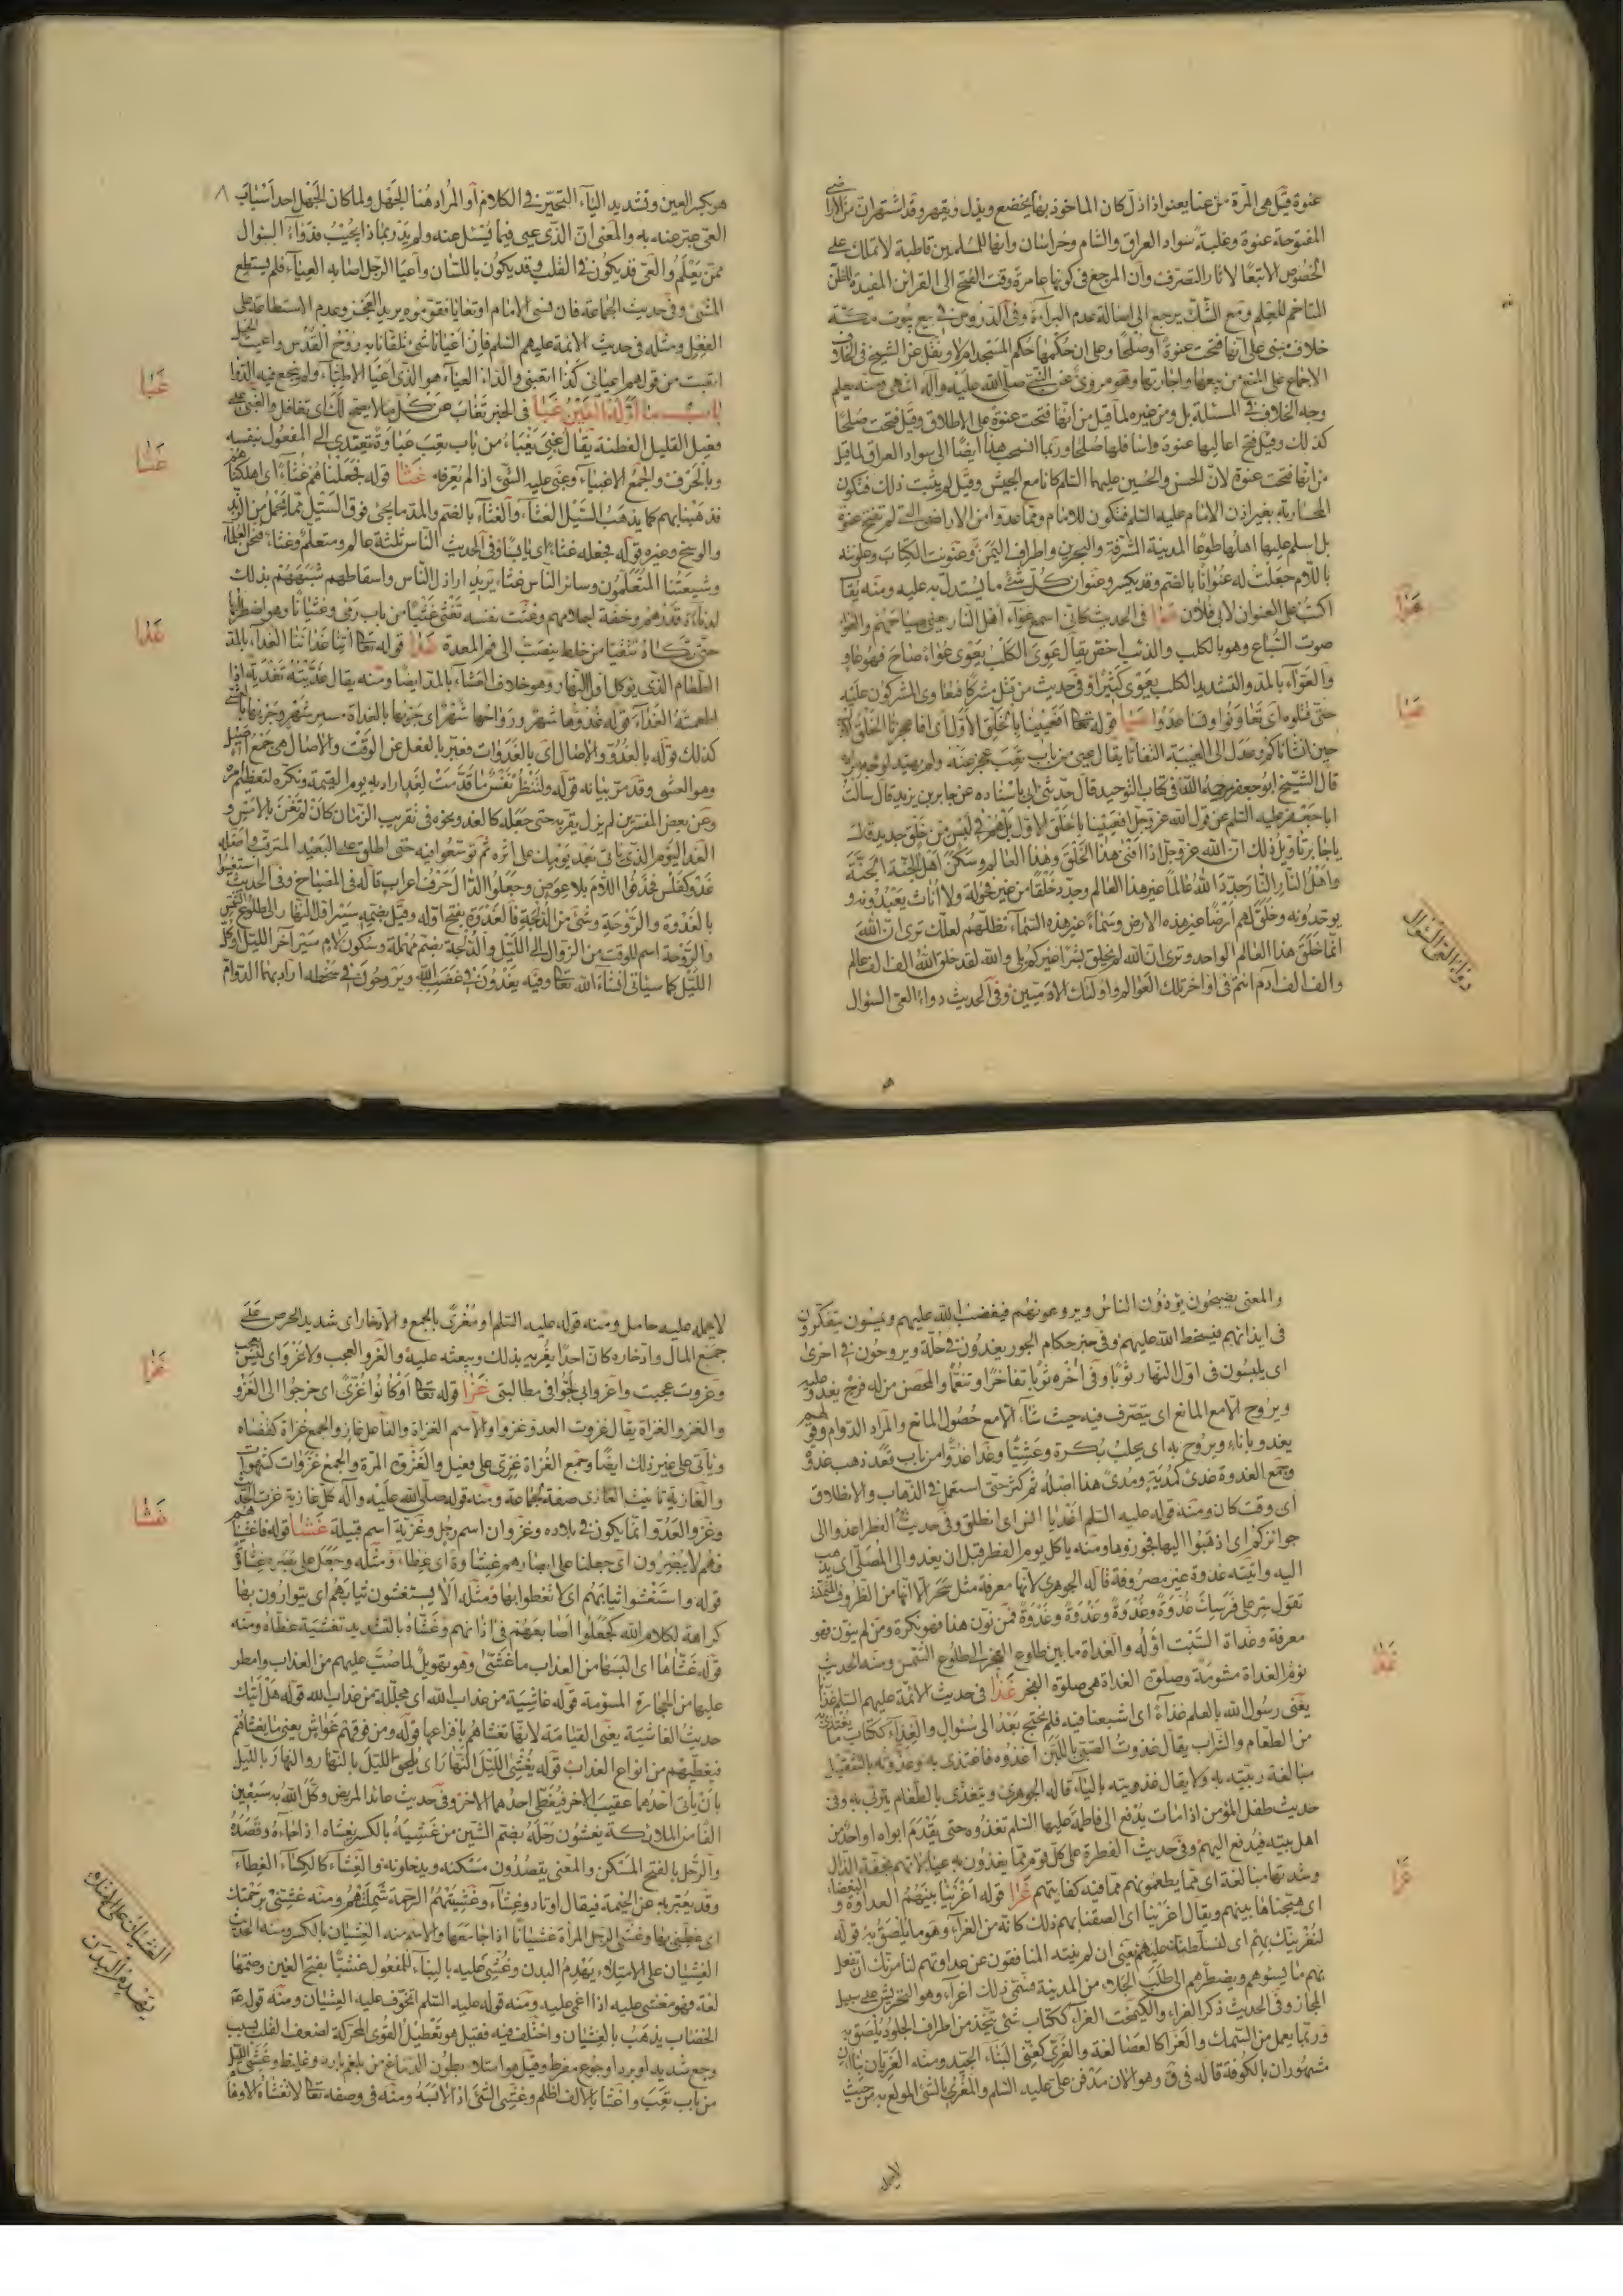 عنوة قيل هي المرة من عنا يعنو اذا ذل كان الماخوذ بها يخضع ويذل ويقهر وقد اشتهر ان من الاراضى
المفتوحة عنوة وغلبة سواد العراق والشام وخراسان وانها للمسلمين قاطبة لا تملك على
الخصوص الا تبعا لاثار التصرف وان المرجع في كونها عامرة وقت الفتح الى القرائن المفيدة للظن
المتاخم للعلم ومع الشك يرجع الى اصالة عدم البراءة وفى الدروس في بيع بيوت مكة
خلاف مبنى على انها فتحت عنوة او صلحا وعلى ان حكمها حكم المسجد ام لا ونقل عن الشيخ في الخلاف
الاجماع على المنع من بيعها واجارتها وهو مروى عن النبي صلى الله عليه وآله انتهى ومنه يعلم
وجه الخلاف في المسئلة بل ومن غيره لما قيل من انها فتحت عنوة على الاطلاق وقيل فتحت صلحا
كذلك وقيل فتح اعاليها عنوة واسافلها صلحا وربما انسحب هذا ايضا الى سواد العراق لما قيل
من انها فتحت عنوة لان الحسن والحسين عليهما السلم كانا مع الجيش وقيل لم يثبت ذلك فتكون
المحاربة بغير اذن الامام عليه السلم فتكون للامام ومما عدوا من الاراضى التي لم تفتح عنوة
بل اسلم عليها اهلها طوعا المدينة المشرفة والبحرين واطراف اليمن وعنونت الكتاب وعلونته
باللام جعلت له عنوانا بالضم وقد يكسر وعنوان كل شئ ما يستدل به عليه ومنه يقا
اكتب على العنوان لابى فلان عوا في الحديث كانى اسمع عواء اهل النار يعنى صياحهم والعواء
صوت السباع وهو بالكلب والذئب اخص يقال عوى الكلب يعوى عواء صاح فهو عاو
والعواء بالمد والتشديد الكلب يعوى كثيرا وفى حديث من قتل مشركا فتعاوى المشركون عليه
حتى قتلوه اى تعاونوا وتساعدوا عيا قوله تعا افعيينا بالخلق الاول اى افاعجزنا الخلق
حين انشاناكم وعدل الى الغيبة التفاتا يقال عيى من باب تعب عجز عنه ولم يهتد لوجه
قال الشيخ ابو جعفر رحمه الله في كتاب التوحيد قال حدثنى ابى باسناده عن جابر بن يزيد قال سالت
ابا جعفر عليه السلم عن قول الله عز وجل افعيينا بالخلق الاول بل هم في لبس من خلق جديد قال
يا جابر تاويل ذلك ان الله عز وجل اذا افنى هذا الخلق وهذا العالم وسكن اهل الجنة الجنة
واهل النار النار جدد الله عالما غير هذا العالم وجدد خلقا من غير فحولة ولا اناث يعبدونه و
يوحدونه وخلق لهم ارضا غير هذه الارض وسماء غير هذه السماء تظلهم لعلك ترى ان الله
انما خلق هذا العالم الواحد وترى ان الله لم يخلق بشرا غيركم بلى والله لقد خلق الله الف الف عالم
والف الف ادم انتم في اواخر تلك العوالم واولئك الادميين وفى الحديث دواء العى السؤال
عوا
عيا
دواء العى السؤال
هو
هو بكسر العين وتشديد الياء التحير في الكلام او المراد هنا الجهل ولما كان الجهل احد اسباب
العى عبر عنه به والمعنى ان الذى عيى فيما يسئل عنه ولم يدر بماذا يجيب فدواءه السؤال
ممن يعلم والعى قد يكون في القلب وقد يكون باللسان واعيا الرجل اصابه العياء فلم يستطع
المشى وفى حديث الجماعة فان نسى الامام او تعايا فقوموه يريد العجز وعدم الاستطاعة على
الفعل ومثله في حديث الائمة عليهم السلم فان اعيانا شئ تلقانا به روح القدس واعيت
اتعبت من قولهم اعيانى كذا اتعبنى والداء العياء هو الذى اعيا الاطباء ولم ينجع فيه الدوا
باب ما اوله الغين غبا في الخبر تغاب عن كل ما لا يصح لك اى تغافل والغبى على
فعيل القليل الفطنة يقال غبى يغبى من باب تعب غباوة يتعدى الى المفعول بنفسه
وبالحرف والجمع الاغبياء وغبى عليه الشئ اذا لم يعرفه غثا قوله فجعلناهم غثاء اى اهلكناهم
فذهبنا بهم كما يذهب السيل الغثاء والغثاء بالضم والمد ما يجئ فوق السيل مما يحمل من الزبد
والوسخ وغيره قوله فجعله غثاء اى يابسا وفى الحديث الناس ثلثة عالم ومتعلم وغثاء فنحن العلماء
وشيعتنا المتعلمون وسائر الناس غثاء يريد اراذل الناس واسقاطهم شبههم بذلك
لدناءة قدرهم وخفة احلامهم وغثت نفسه تغثى غثيا من باب رمى وغثيانا وهو اضطرابها
حتى تكاد تتقيا من خلط ينصب الى فم المعدة غدا قوله تعا اتنا غداءنا الغداء بالمد
الطعام الذى يؤكل اول النهار وهو خلاف العشاء بالمد ايضا ومنه يقال غديته تغدية اذا
اطعمته الغداء قوله غدوها شهر ورواحها شهر اى جريها بالغداة مسير شهر وجريها بالعشى
كذلك قوله بالغدو والاصال اى بالغدوات فعبر بالفعل عن الوقت والاصال هى جمع اصيل
وهو العشى وقد مر بيانه قوله ولتنظر نفس ما قدمت لغد اراد به يوم القيمة ونكره لتعظيم امره
وعن بعض المفسرين لم يزل يقربه حتى جعله كالغد ونحوه في تقريب الزمان كان لم تغن بالامس و
الغد اليوم الذى ياتى بعد يومك على اثره ثم توسعوا فيه حتى اطلق على البعيد المترقب اصله
غدو كفلس فحذفوا اللام بلا عوض وجعلوا الدال حرف اعراب قاله في المصباح وفى الحديث استعينوا
بالغدوة والروحة وشئ من الدلجة فالغدوة بفتح اوله وقيل بضمه سير اول النهار الى طلوع الشمس
والروحة اسم للوقت من الزوال الى الليل والدلجة بضم مهملة وسكون لام سير آخر الليل او كل
الليل كما سياتى انشاء الله تعا وفيه يغدون في غضب الله ويروحون في سخطه اراد بهما الدوام
غبا
غثا
غدا
والمعنى يصبحون يؤذون الناس ويروعونهم فيغضب الله عليهم ويمسون يتفكرون
في ايذائهم فيسخط الله عليهم وفى خبر حكام الجور يغدون في حلة ويروحون في اخرى
اى يلبسون في اول النهار ثوبا وفى اخره ثوبا تفاخرا وتنعما والمحصن من له فرج يغدو عليه
ويروح الا مع المانع اى يتصرف فيه حيث شاء الا مع حصول المانع والمراد الدوام وفى
يغدو باناء ويروح به اى يحلب بكرة وعشيا وغدا غدوا من باب قعد ذهب غدوة
وجمع الغدوة غدى كمدية ومدى هذا اصله ثم كثر حتى استعمل في الذهاب والانطلاق
اى وقت كان ومنه قوله عليه السلم اغد يا انس اى انطلق وفى حديث الفطر اغدوا الى
جوائزكم اى اذهبوا اليها فحوزوها ومنه ياكل يوم الفطر قبل ان يغدو الى المصلى اى يذهب
اليه واتيته غدوة غير مصروفة قاله الجوهرى لانها معرفة مثل سحر الا انها من الظروف المتمكنة
تقول سر على فرسك غدوة وغدوة وغدوة وغدوة فمن نون هذا فهو نكرة ومن لم ينون فهو
معرفة وغداة السبت اوله والغداة ما بين طلوع الفجر الى طلوع الشمس ومنه الحديث
نوم الغداة مشومة وصلوة الغداة هى صلوة الفجر غذا في حديث الائمة عليهم السلم
يغذى رسول الله بالعلم غذاء اى اشبعنا فيه فلم نحتج بعد الى سؤال والغذاء ككتاب ما يغتذى به
من الطعام والشراب يقال غذوت الصبى باللبن اغذوه فاغتذى به وغذوته بالتثقيل
مبالغة ربيته به ولا يقال غذويته بالياء قاله الجوهرى ويتغذى بالطعام يتربى به وفى
حديث طفل المؤمن اذا مات يدفع الى فاطمة عليها السلم تغذوه حتى يقدم ابواه او احد من
اهل بيته فيدفع اليهم وفى حديث الفطرة على كل قوم مما يغذون به عيالاتهم مخففة الذال
ومشددتها مبالغة اى مما يطعمونهم مما فيه كفايتهم غرا قوله اغرينا بينهم العداوة والبغضاء
اى هيجناها بينهم ويقال اغرينا اى الصقنا بهم ذلك كانه من الغراء وهو ما يلصق به قوله
لنغرينك بهم اى لنسلطنك عليهم يعنى ان لم ينته المنافقون عن عداوتهم لنامرنك ان تفعل
بهم ما يسوهم ويضطرهم الى طلب الجلاء من المدينة فسمى ذلك اغراء وهو التحريش على سبيل
المجاز وفى الحديث ذكر الغراء والكيمخت الغراء ككتاب شئ يتخذ من اطراف الجلود يلصق به
وربما يعمل من السمك والغرا كالعصا لغة والغرى كغنى البناء الجيد ومنه الغريان بناءان
مشهوران بالكوفة قاله في ق وهو الان مدفن على عليه السلم والمغرى بالشئ المولع به من حيث
غذا
غرا
لا يحمله
لا يحمله عليه حامل ومنه قوله عليه السلم او مغرى بالجمع والادخار اى شديد الحرص على
جمع المال وادخاره كان احدا يغريه بذلك ويبعثه عليه والغرو العجب ولا غرو اى ليس بعجب
وغروت عجبت واغروا بى لجوا في مطالبتى غزا قوله تعا او كانوا غزى اى خرجوا الى الغزو
والغزو الغزاة يقال غزوت العدو غزوا والاسم الغزاة والفاعل غاز والجمع غزاة كقضاة
وياتى على غير ذلك ايضا وجمع الغزاة غزى على فعيل والغزوة المرة والجمع غزوات كشهوات
والغازية تانيث الغازى صفة لجماعة ومنه قوله صلى الله عليه وآله كل غازية غزت
وغزو العدو انما يكون في بلاده وغزوان اسم رجل وغزية اسم قبيلة غشا قوله فاغشيناهم
فهم لا يبصرون اى جعلنا على ابصارهم غشاوة اى غطاء ومثله وجعل على بصره غشاوة
قوله واستغشوا ثيابهم اى تغطوا بها ومثله الا يستغشون ثيابهم اى يتوارون بها
كراهة لكلام الله كجعلوا اصابعهم في اذانهم وغشاه بالتشديد تغشية غطاه ومنه
قوله فغشاها اى البسها من العذاب ما غشى وهو تهويل لما صب عليهم من العذاب وامطر
عليها من الحجارة المسومة قوله غاشية من عذاب الله اى مجللة من عذاب الله قوله هل اتيك
حديث الغاشية يعنى القيامة لانها تغشاهم بافزاعها قوله ومن فوقهم غواش يعنى ما يغشاهم
فيغطيهم من انواع العذاب قوله يغشى الليل النهار اى يلحق الليل بالنهار والنهار بالليل
بان ياتى احدهما عقيب الاخر فيغطى احدهما الاخر وفى حديث عائد المريض وكل الله به سبعين
الفا من الملائكة يغشون رحله بضم الشين من غشيه بالكسر يغشاه اذا جاءه وقصده
والرحل بالفتح المسكن والمعنى يقصدون مسكنه ويدخلونه والغشاء كالكساء الغطاء
وقد يعتبر به عن الخيمة فيقال اوتاد وغشاء وغشيتهم الرحمة شملتهم ومنه غشنى برحمتك
اى غطنى بها وغشى الرجل المرأة غشيانا اذا جامعها والاسم منه الغشيان بالكسر ومنه الحديث
الغشيان على الامتلاء يهدم البدن وغشى عليه بالبناء للمفعول غشيا بفتح الغين وضمها
لغة فهو مغشى عليه اذا اغمى عليه ومنه قوله عليه السلم اتخوف عليه الغشيان ومنه قوله
الخضاب يذهب بالغشيان واختلف فيه فقيل هو تعطيل القوى المحركة لضعف القلب بسبب
وجع شديد او برد او جوع مفرط وقيل هو امتلاء بطون الدماغ من بلغم بارد وغليظ وغشى الليل
من باب تعب واغشا بالالف اظلم وغشى الشئ اذا لابسه ومنه في وصفه تعا لا تغشاه الاوهام
غزا
غشا
الغشيان على الامتلاء
يهدم البدن